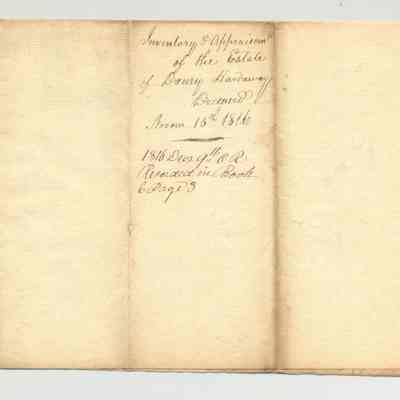 Inventory & Appraisemt
of the Estate
of Drury Hardaway
Deceased
18th 1816
1816 Decr 9th & R
Recorded in Book
6 Page 3